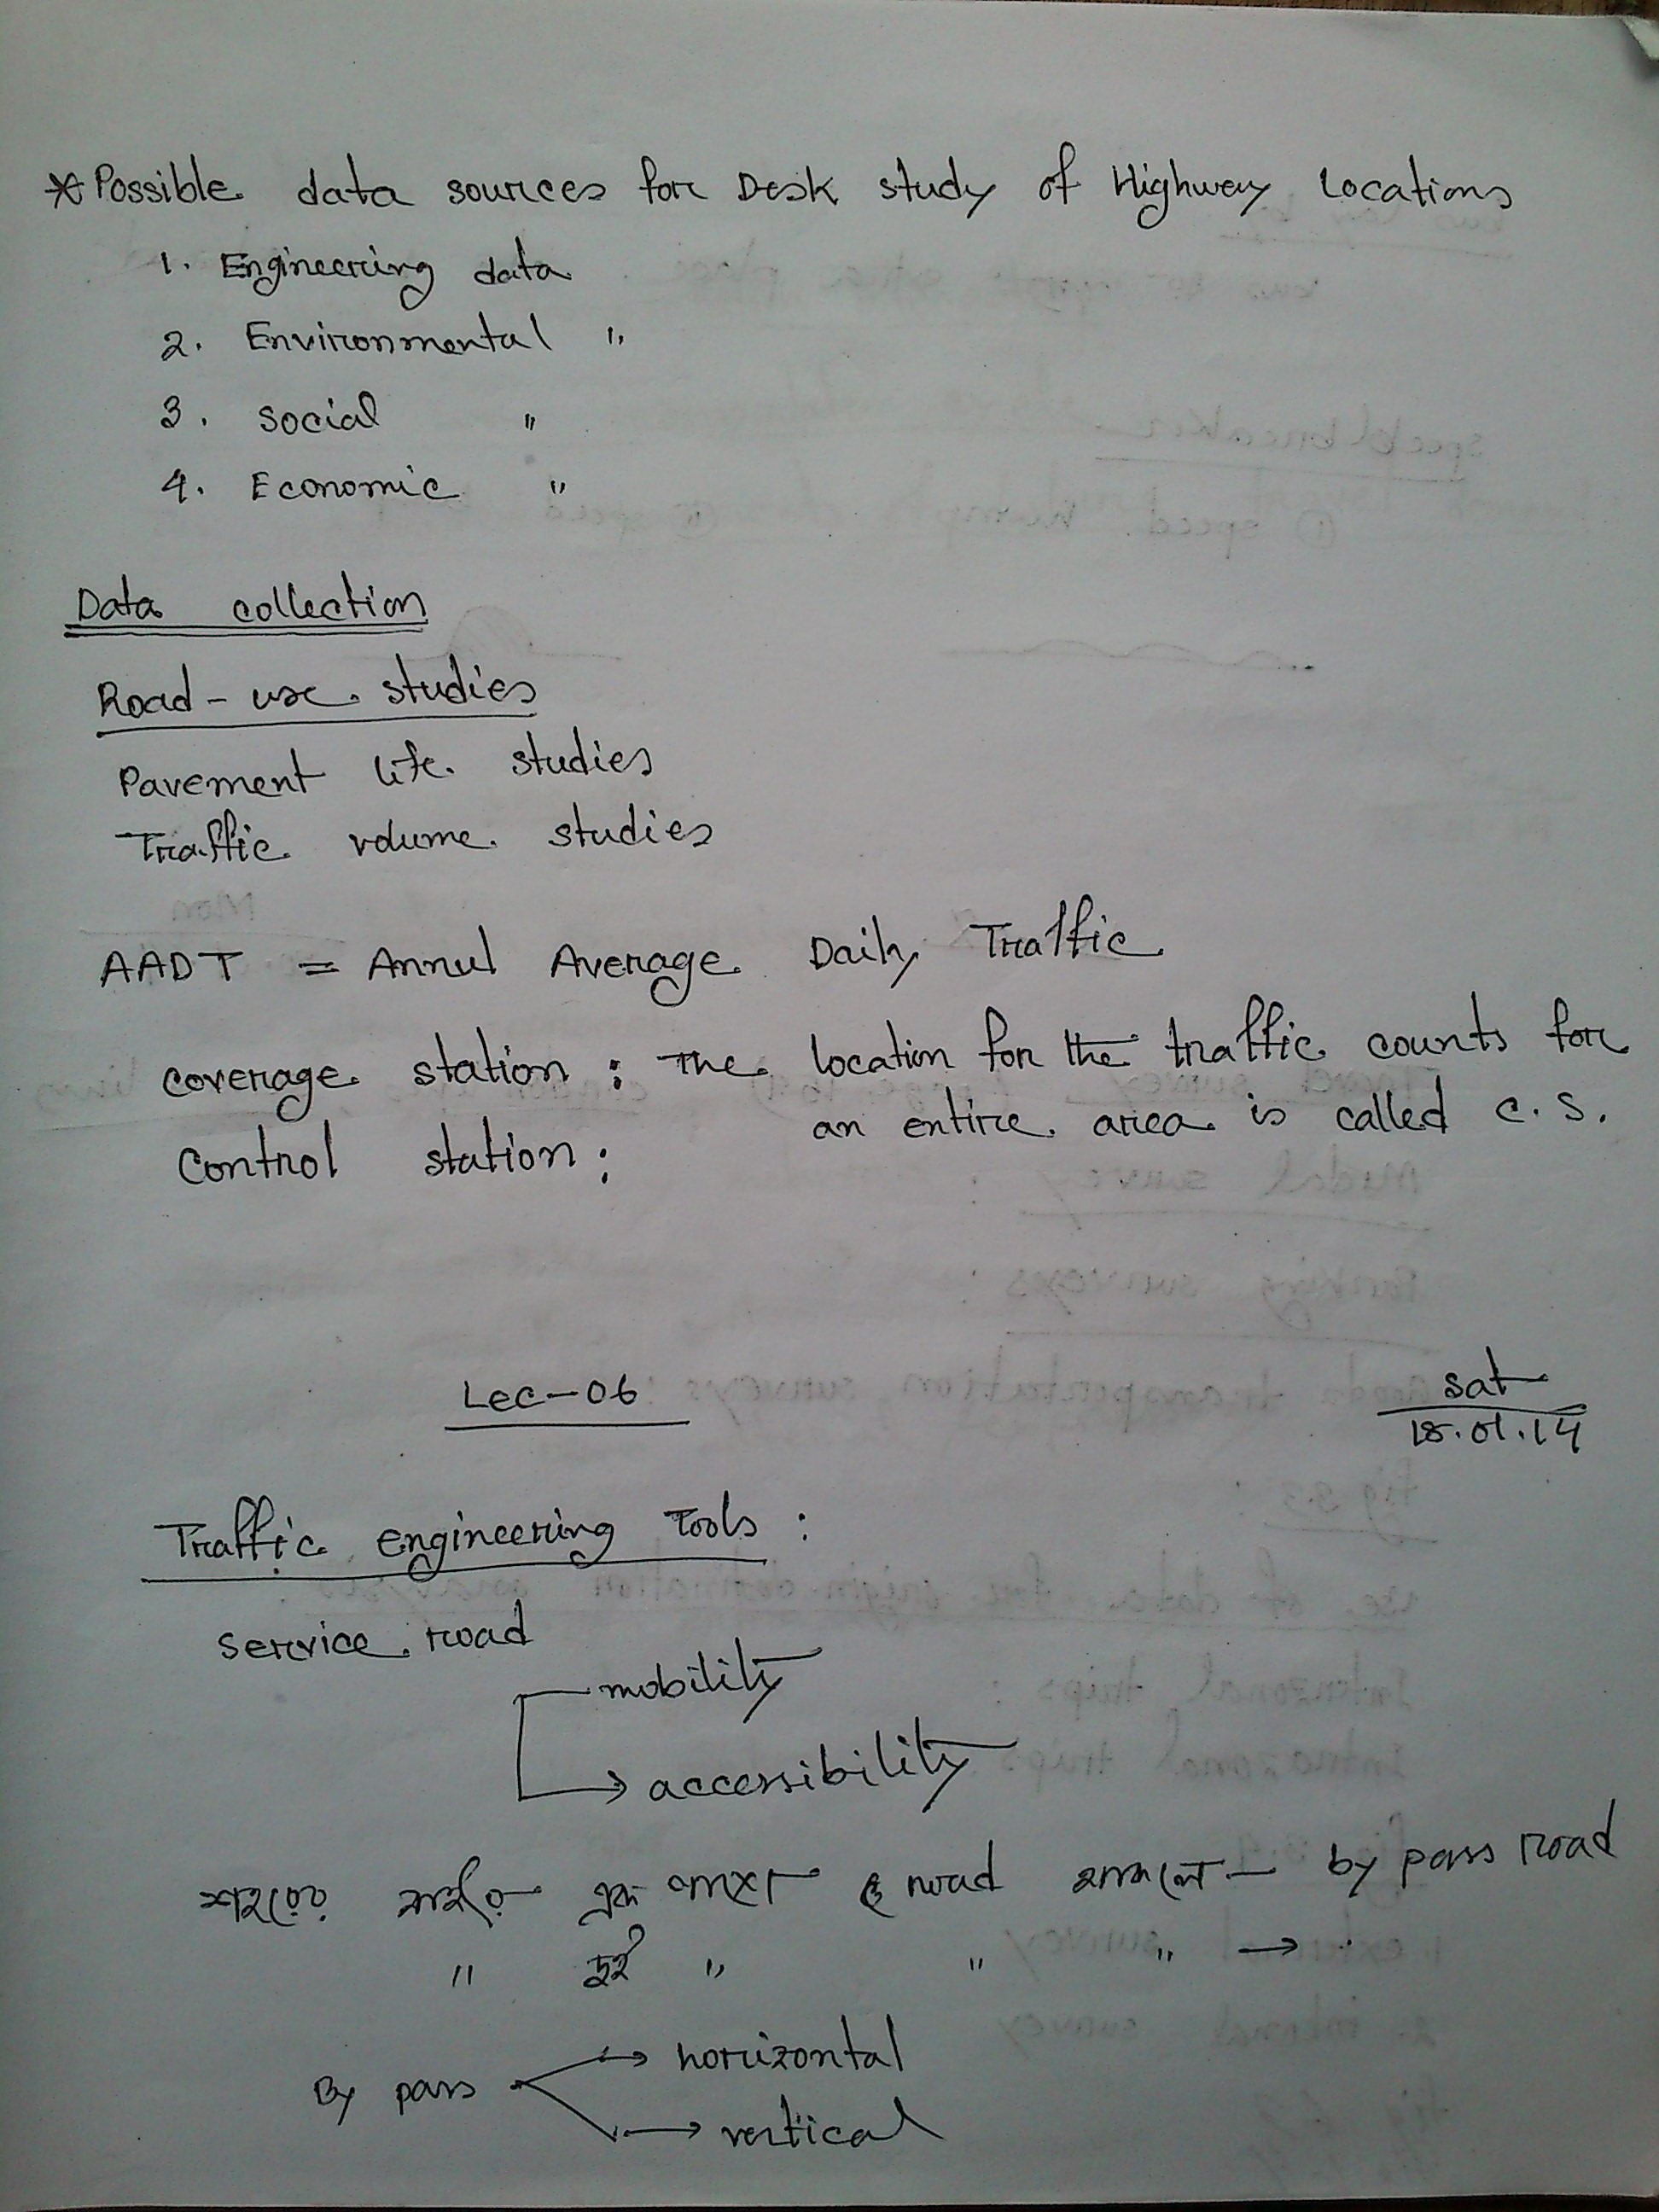 * Possible data sources for Desk study of Highway Locations
1. Engineering data
2. Environmental "
3. social "
4. Economic "
Data collection
Road-use studies
Pavement life studies
Traffic volume studies
AADT = Annul Average Daily Traffic
coverage station : The location for the traffic counts for
an entire area is called c.s.
Control station :
Lec-06
sat
18.01.14
Traffic engineering Tools :
service road
mobility
→ accessibility
শহরের বাইরে এক road by pass road
" দুই " " " →
By pass → horizontal
→ vertical